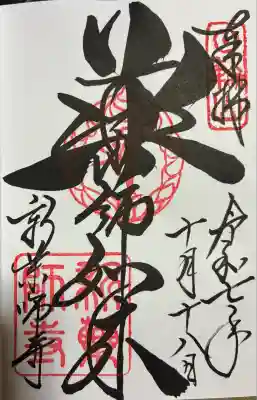 奉拝
令和七年
十月十八日
薬師如来
新薬師寺